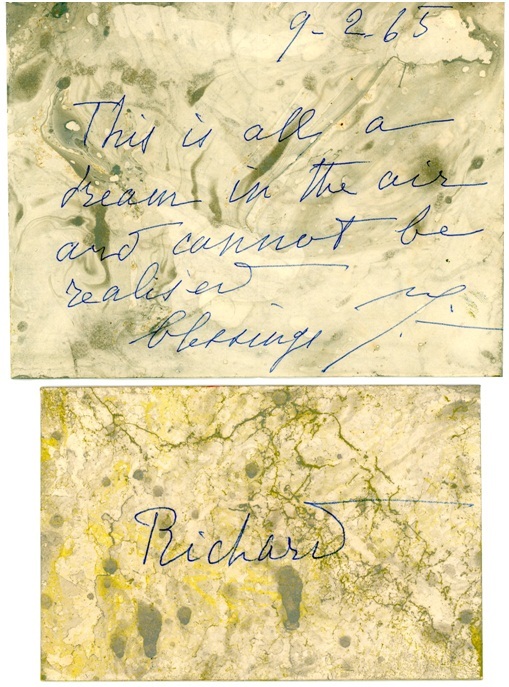 9-2.65
This is all a
dream in the air
and cannot be
realised
blessings
Richard